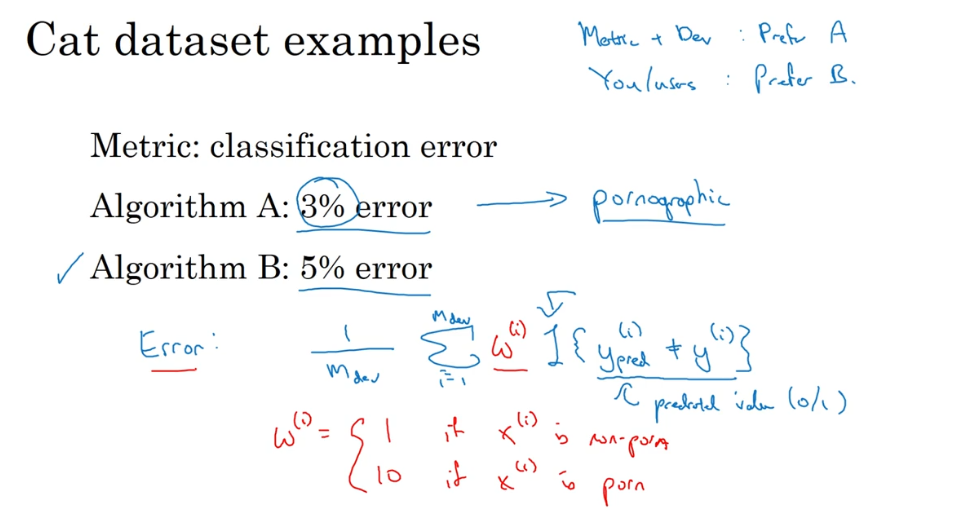 Cat dataset examples
Metric + Dev : Prefer A
You/users : Prefer B.
Metric: classification error
Algorithm A: 3% error → pornographic
✓ Algorithm B: 5% error
Error: 1/m_dev Σ_{i=1}^{m_dev} w^(i) I{ y_pred^(i) ≠ y^(i) }
predicted value (0/1)
w^(i) = { 1 if x^(i) is non-porn
10 if x^(i) is porn